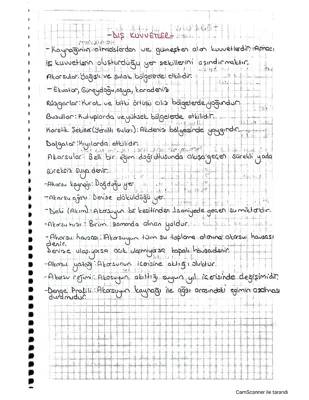 -DIŞ KUVVETLER-
-Kaynağının atmosferden ve güneşten alan kuvvetlerdir. Amacı,
iç kuvvetlerin oluşturduğu yer şekillerini aşındırmaktır.
Akarsular: Yağışlı ve sulak bölgelerde etkilidir.
-Ekvator, Güneydoğu Asya, Karadeniz
Rüzgarlar: Kurak ve bitki örtüsü cılız bölgelerde yoğundur.
Buzullar: Kutuplarda ve yüksek bölgelerde etkilidir.
Karstik Şekiller (Yeraltı suları): Akdeniz bölgesinde yaygındır.
Dalgalar: Kıyılarda etkilidir.
Akarsular: Belli bir eğim doğrultusunda oluşa geçen sürekli yada
süreksiz suya denir.
-Akarsu kaynağı: Doğduğu yer
-Akarsu ağzı: Denize döküldüğü yer.
-Debi (Akım): Akarsuyun bir kesitinden 1 saniyede geçen su miktarıdır.
-Akarsu hızı: Birim zamanda alınan yoldur.
-Akarsu havzası: Akarsuyun tüm su toplama alanına akarsu havzası
denir.
Denize ulaşıyorsa açık, ulaşmıyorsa kapalı havzadenir.
-Akarsu yatağı: Akarsunun içerisine aktığı oluktur.
-Akarsu rejimi: Akarsuyun akıttığı suyun yıl içerisinde değişimidir.
-Denge Profili: Akarsuyun kaynağı ile ağzı arasındaki eğimin azalması
durumudur.
CamScanner ile tarandı